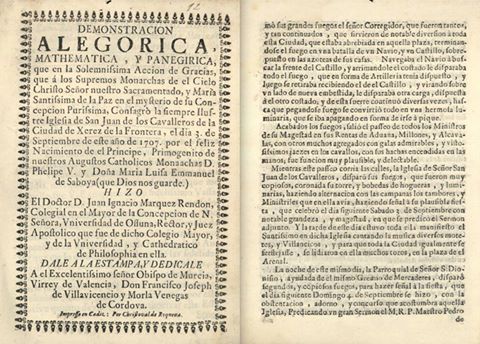 DEMONSTRACION
ALEGORICA,
MATHEMATICA, Y PANEGIRICA,
que en la Solemnissima Accion de Gracias,
que à los Supremos Monarchas de el Cielo
Christo Señor nuestro Sacramentado, y Maria
Santissima de la Paz en el mysterio de su Con-
cepcion Purissima. Consagrò la siempre Ilus-
tre Iglesia de San Juan de los Cavalleros de la
Ciudad de Xerez de la Frontera, el dia 3. de
Septiembre de este año de 1707. por el feliz
Nacimiento de el Principe, Primogenito de
nuestros Augustos Catholicos Monarchas D.
Phelipe V. y Doña Maria Luisa Emmanuel
de Saboya (que Dios nos guarde.)
HIZO
El Doctor D. Juan Ignacio Marquez Rendon,
Colegial en el Mayor de la Concepcion de N.
Señora, Vniversidad de Ossuna, Rector, y Juez
Apostolico que fue de dicho Colegio Mayor,
y de la Vniversidad, y Cathedratico
de Philosophia en ella.
DALE A LA ESTAMPA, Y DEDICALE
A el Excelentissimo Señor Obispo de Murcia,
Virrey de Valencia, Don Francisco Joseph
de Villavicencio y Morla Venegas
de Cordova.
Impresso en Cadiz: Por Christoval de Requena.
mino sus grandes fuegos el señor Corregidor, que fueron tantos,
y tan continuados, que sirvieron de notable diversion à toda
esta Ciudad, que estaba abreviada en aquella plaza, terminan-
dose el fuego en vna batalla de vn Navio, y vn Castillo, sobre-
puesto en las azoteas de sus casas. Navegaba el Navio à bus-
car la frente del Castillo, y arrimandole el costado le disparaba
todo el fuego, que en forma de Artilleria tenia dispuesto, y
luego se retiraba recibiendo el de el Castillo, y virando sobre
vn lado de nueva embestida, le disparaba otra carga, dispuesta
à el otro costado, y de esta suerte continuò diversas vezes, has-
ta que pegandose fuego se convirtiò todo en vna hermosa lumi-
naria, que se iba apagando en forma de irse à pique.
Acabados los fuegos, saliò el passeo de todos los Ministros
de su Magestad en sus Rentas de Aduana, Millones, y Alcava-
las, con otros muchos agregados con galas admirables, y vistos-
samente jaezados los cavallos, con sus hachas encendidas en las
manos, fue funcion muy plausible, y delectable.
Mientras este passeo corria las calles, la Iglesia de Señor San
Juan de los Cavalleros, disparò sus fuegos, que fueron muy
copiosos, coronada su torre, y bobedas de hogueras, y lumi-
narias, haziendo alternacion con las campanas los tambores, y
Ministriles que en ella avia, haziendo señal à su plausible fies-
ta, que celebrò el dia siguiente Sabado 3. de Septiembre con
notable grandeza, y magestad, en que se predicò el Sermon
adjunto. Y la tarde de este dia estuvo toda ella manifiesto lo
Santissimo en dicha Iglesia cantando la musica diversos mote-
tes, y Villancicos, y para que toda la Ciudad igualmente se
festejasse, se lidiaron en ella muchos toros, en la plaza de el
Arenal.
La noche de este mismo dia, la Parroquial de Señor S. Dio-
nisio, ayudada de el mismo Gremio de Mercaderes, disparò
segundos, y copiosos fuegos, para hazer señal à la fiesta, que
el dia siguiente Domingo 4. de Septiembre se hizo, con la
obstentacion, adorno, y concurso que acostumbra aquella
Iglesia, Predicando vn gran Sermon el M.R.P. Maestro Pedro
de